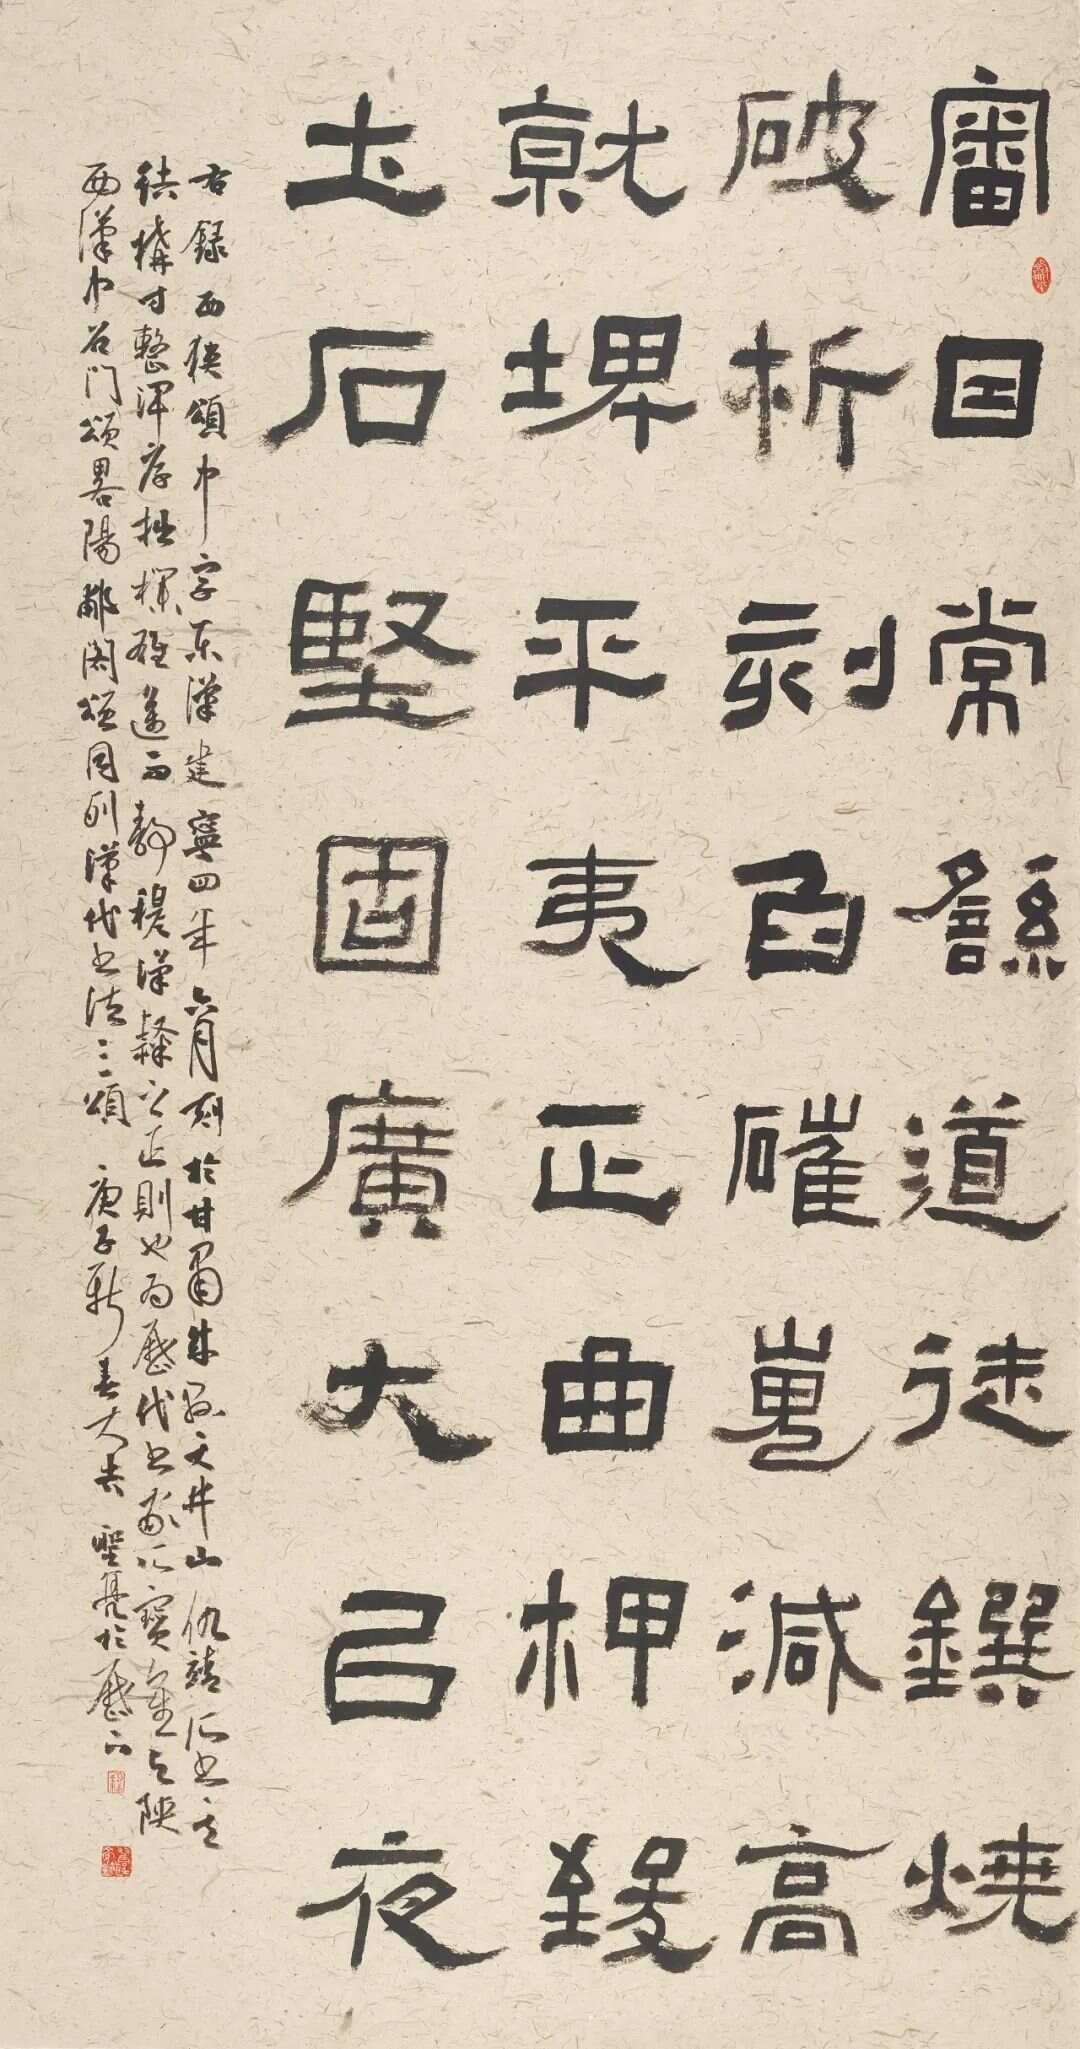 審因常繇道徒鐉燒
破析刻臽磪嵬減高
就埤平夷正曲柙致
土石堅固廣大㠯夜
右錄西狹頌中字東漢建寧四年六月刻於甘肅成縣天井山仇靖所書其
結構方整渾厚拙樸雄遒而靜穆漢隸之正則也為歷代書家所寶重与陝
西漢中石門頌畧陽郙閣頌同列漢代書法三頌 庚子新春大吉 聖亮於歷下